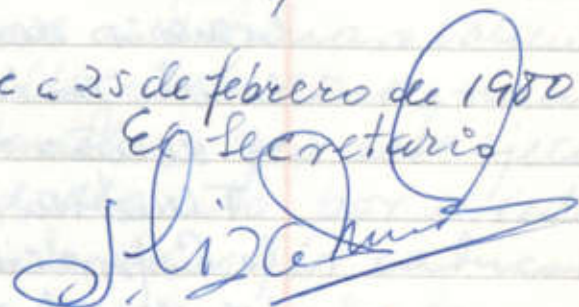 a 25 de febrero de 1980
El Secretario